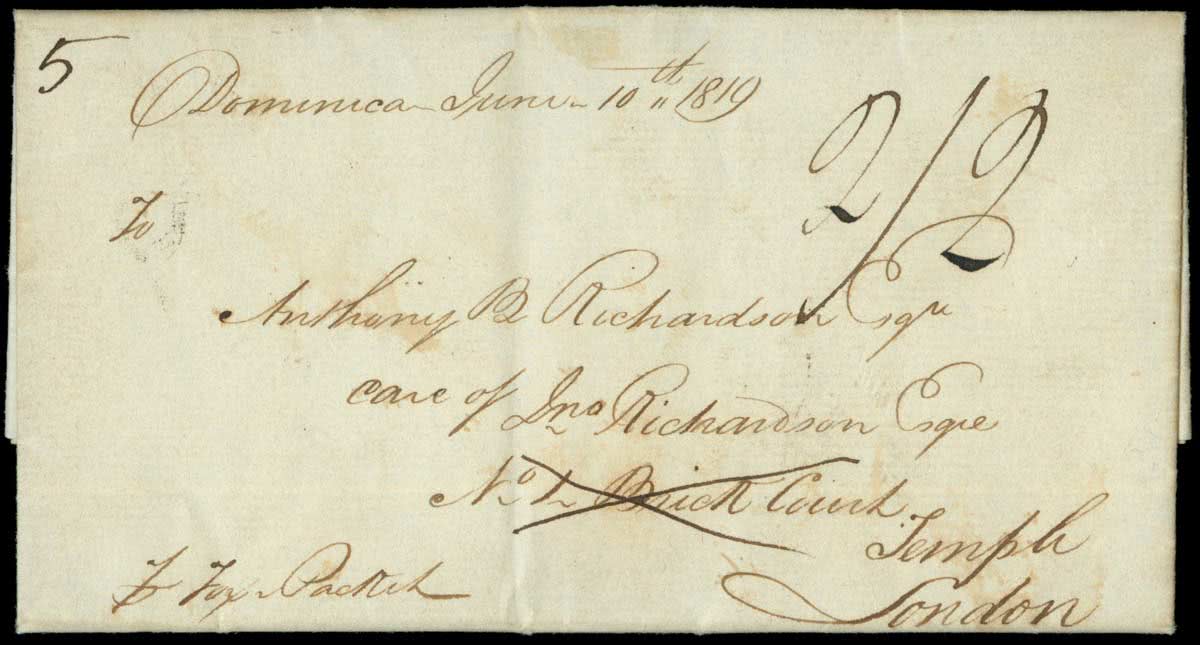 5
Dominica June 10th 1819
2/2
To
Anthony B Richardson Esqr
care of Jno Richardson Esqre
No 1 Brick Court
Temple
London
Fox Packet